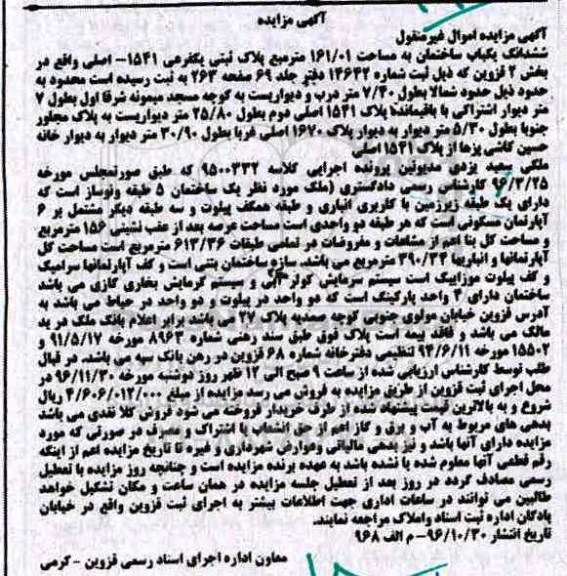 آگهی مزایده
آگهی مزایده اموال غیرمنقول
ششدانگ یکباب ساختمان به مساحت ۱۶۱/۰۱ مترمربع پلاک ثبتی یکفرعی ۱۵۴۱- اصلی واقع در
بخش ۲ قزوین که ذیل ثبت شماره ۱۲۶۴۲ دفتر جلد ۶۹ صفحه ۲۶۳ به ثبت رسیده است محدود به
حدود ذیل حدود شمالا بطول ۷/۴۰ متر درب و دیواریست به کوچه مسجد میمونه شرقا اول بطول ۷
متر دیوار اشتراکی با باقیمانده پلاک ۱۵۴۱ اصلی دوم بطول ۲۵/۸۰ متر دیواریست به پلاک مجاور
جنوبا بطول ۵/۳۰ متر دیوار به دیوار پلاک ۱۶۷۰ اصلی غربا بطول ۳۰/۹۰ متر دیوار به دیوار خانه
حسین کاشی پزها از پلاک ۱۵۴۱ اصلی
ملکی سعید یزدی مدیونین پرونده اجرایی کلاسه ۹۵۰۰۳۳۲ که طبق صورتمجلس مورخه
۹۶/۳/۲۵ کارشناس رسمی دادگستری (ملک مورد نظر یک ساختمان ۵ طبقه ونوساز است که
دارای یک طبقه زیرزمین با کاربری انباری و طبقه همکف پیلوت و سه طبقه دیگر مشتمل بر ۶
آپارتمان مسکونی است که هر طبقه دو واحدی است مساحت عرصه بعد از عقب نشینی ۱۵۶ مترمربع
و مساحت کل بنا اعم از مشاعات و مفروضات در تمامی طبقات ۶۱۳/۳۶ مترمربع است مساحت کل
آپارتمانها و انباریها ۳۹۰/۳۴ مترمربع می باشد. سازه ساختمان بتنی است و کف آپارتمانها سرامیک
و کف پیلوت موزاییک است سیستم سرمایش کولر آبی و سیستم گرمایش بخاری گازی می باشد
ساختمان دارای ۴ واحد پارکینگ است که دو واحد در پیلوت و دو واحد در حیاط می باشد به
آدرس قزوین خیابان مولوی جنوبی کوچه صمدیه پلاک ۲۷ می باشد برابر اعلام بانک ملک در ید
مالک می باشد و فاقد بیمه است پلاک فوق طبق سند رهنی شماره ۸۹۶۳ مورخه ۹۱/۵/۱۷ و
۱۵۵۰۲ مورخه ۹۴/۶/۱۱ تنظیمی دفترخانه شماره ۶۸ قزوین در رهن بانک سپه می باشد. در قبال
طلب توسط کارشناس ارزیابی شده از ساعت ۹ صبح الی ۱۲ ظهر روز دوشنبه مورخه ۹۶/۱۱/۳۰ در
محل اجرای ثبت قزوین از طریق مزایده به فروش می رسد مزایده از مبلغ ۴/۶۰۶/۰۱۲/۰۰۰ ریال
شروع و به بالاترین قیمت پیشنهاد شده از طرف خریدار فروخته می شود فروش کلا نقدی می باشد
بدهی های مربوط به آب و برق و گاز اعم از حق انشعاب یا اشتراک و مصرف در صورتی که مورد
مزایده دارای آنها باشد و نیز بدهی مالیاتی وعوارض شهرداری و غیره تا تاریخ مزایده اعم از اینکه
رقم قطعی آنها معلوم شده یا نشده باشد به عهده برنده مزایده است و چنانچه روز مزایده با تعطیل
رسمی مصادف گردد در روز بعد از تعطیل جلسه مزایده در همان ساعت و مکان تشکیل خواهد
طالبین می توانند در ساعات اداری جهت اطلاعات بیشتر به اجرای ثبت قزوین واقع در خیابان
پادگان اداره ثبت اسناد واملاک مراجعه نمایند.
تاریخ انتشار ۹۶/۱۰/۳۰- م الف ۹۶۸
معاون اداره اجرای اسناد رسمی قزوین - کرمی